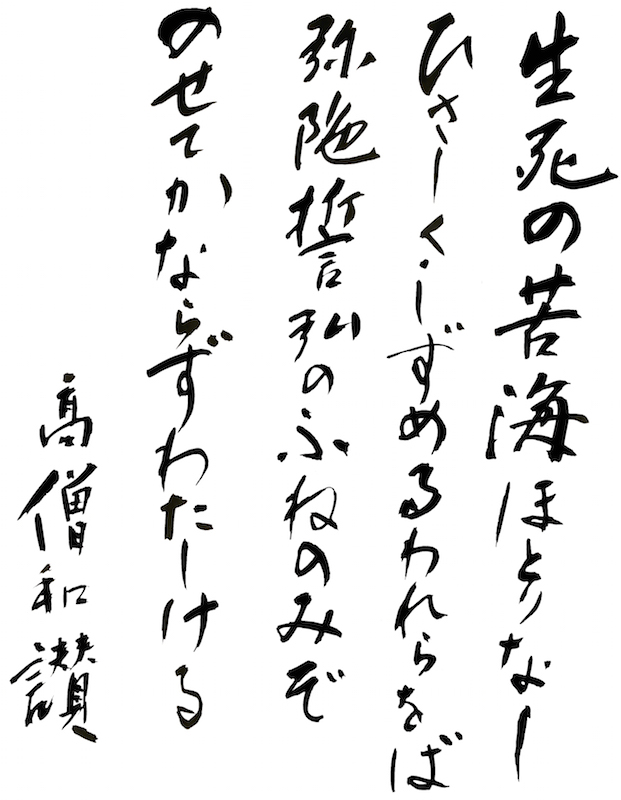 生死の苦海ほとりなし
ひさしくしずめるわれらをば
弥陀誓弘のふねのみぞ
のせてかならずわたしける
高僧和讃